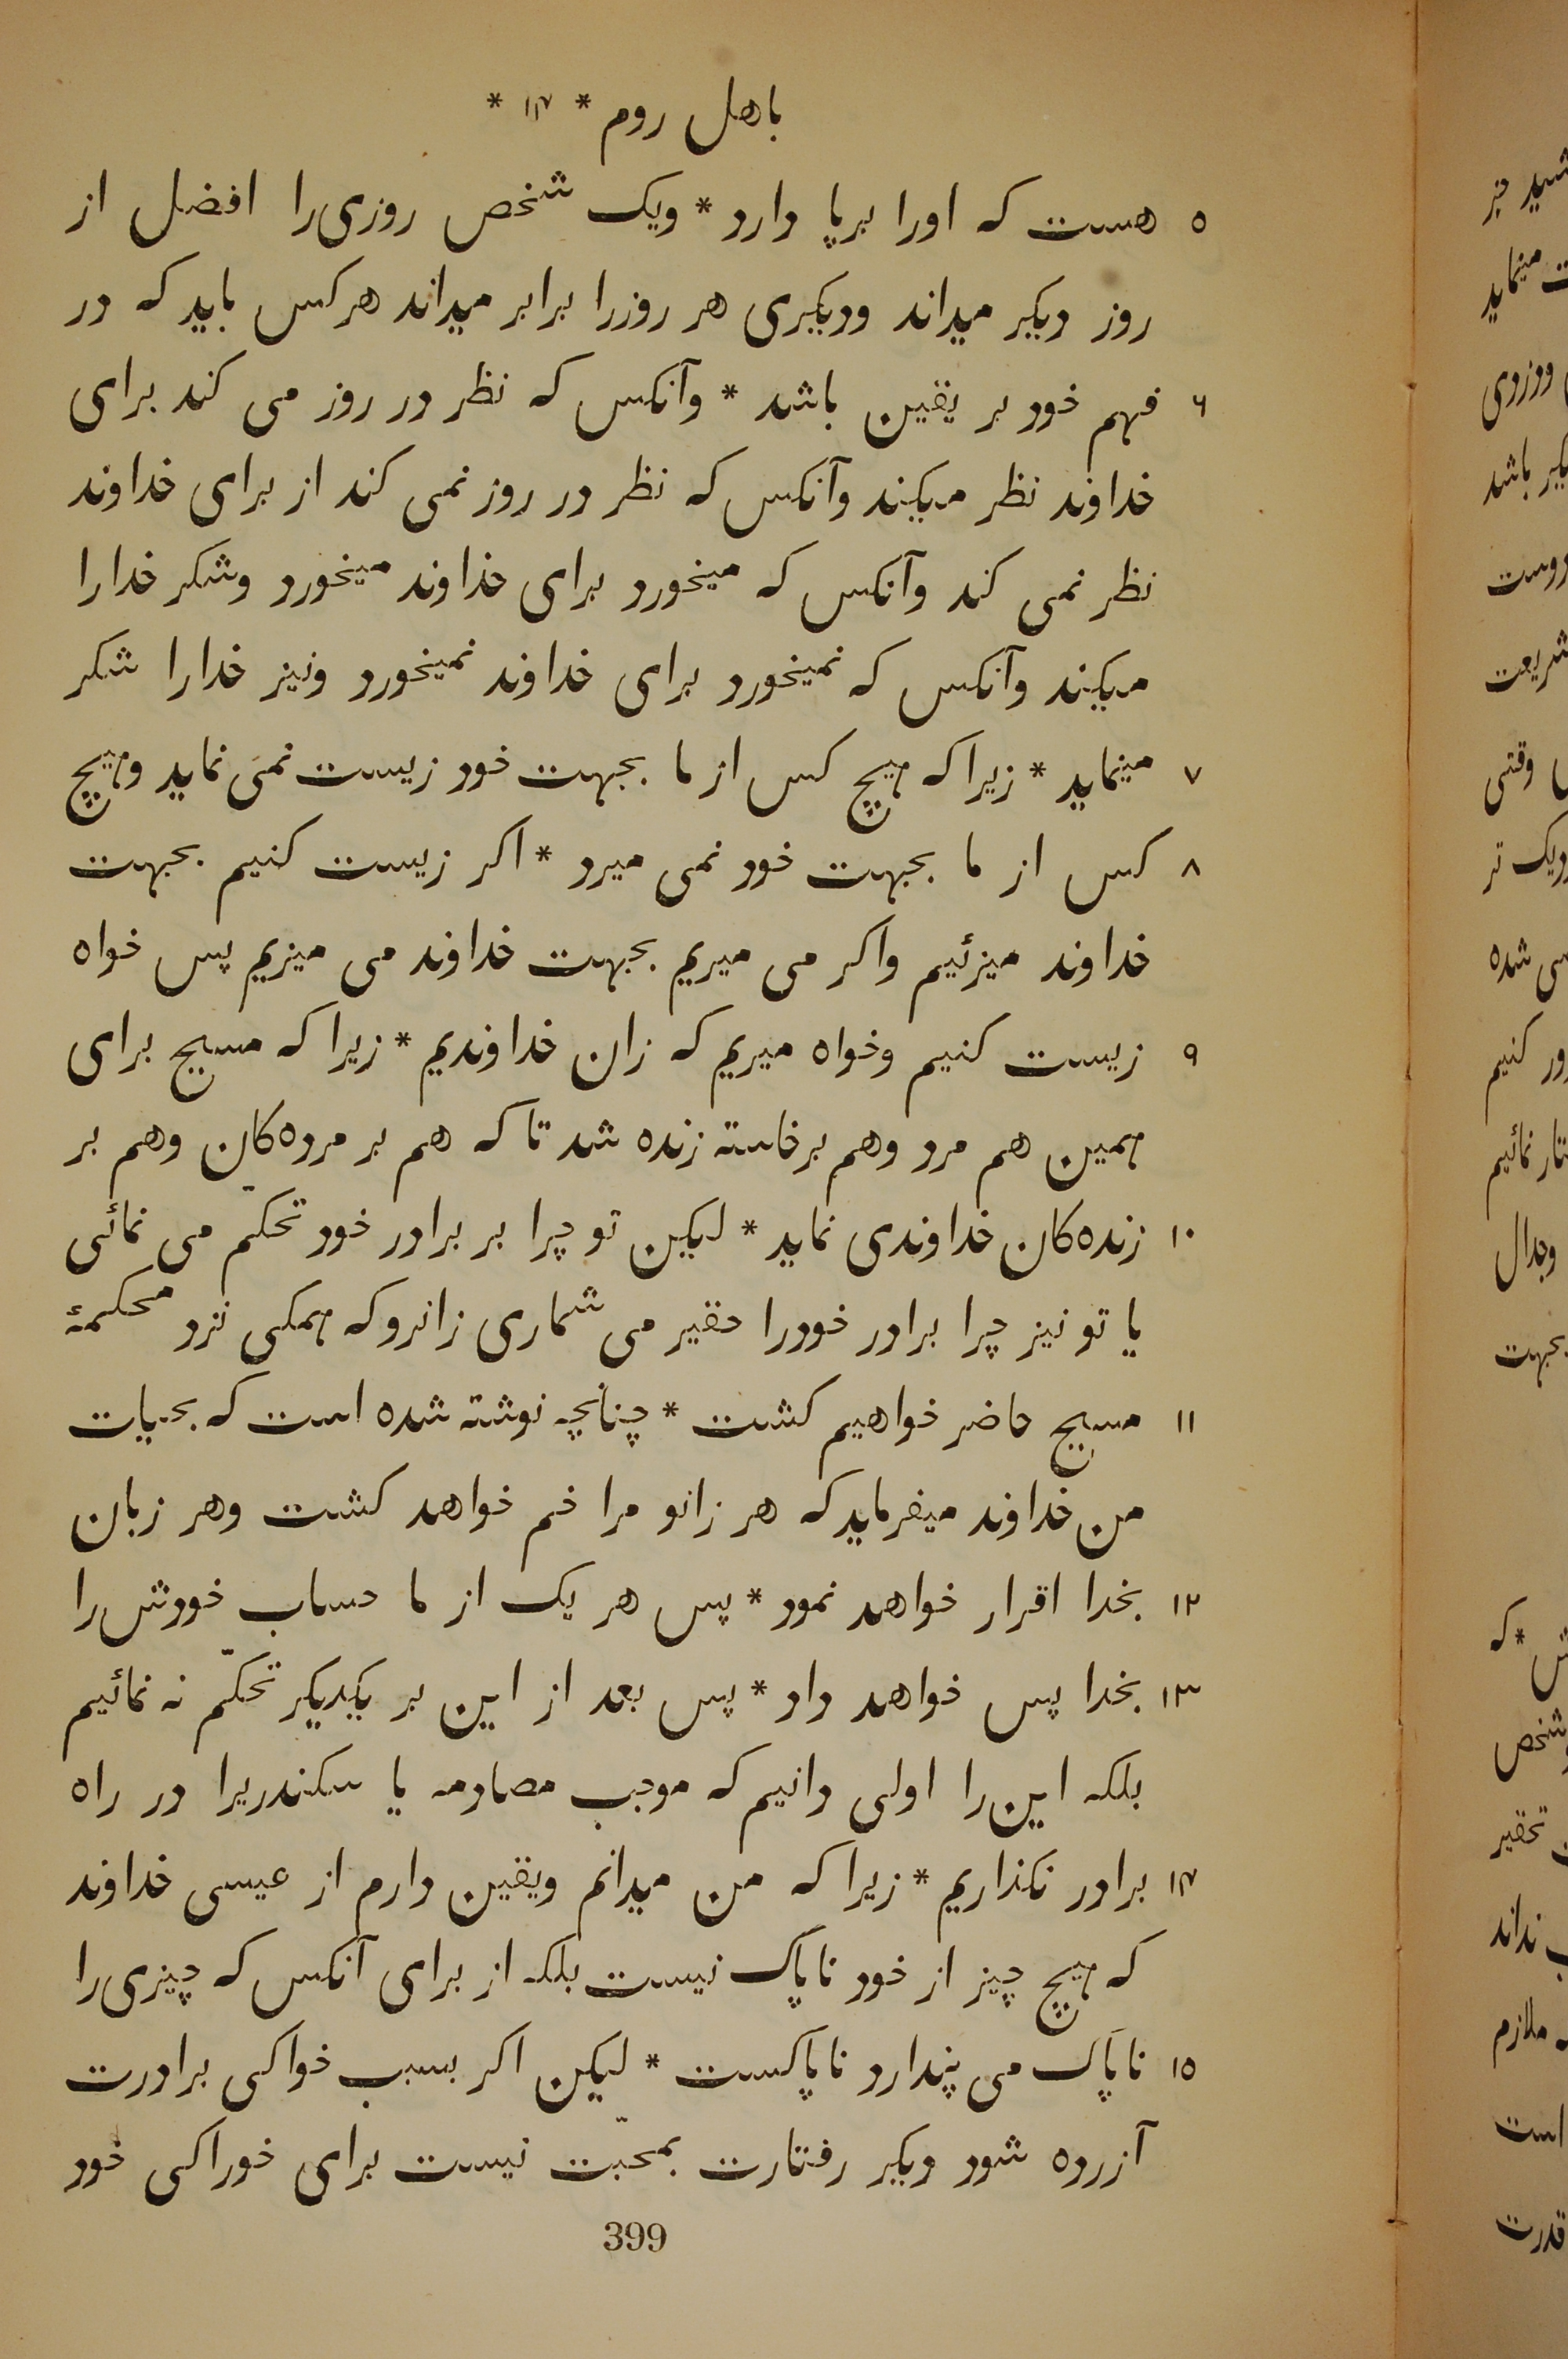 باهل روم * ۱۴ *
۵ هست که اورا برپا دارد * ویک شخص روزی‌را افضل از
روز دیکر میداند ودیکری هر روزرا برابر میداند هرکس باید که در
۶ فهم خود بر یقین باشد * وآنکس که نظر در روز می کند برای
خداوند نظر میکند وآنکس که نظر در روز نمی کند از برای خداوند
نظر نمی کند وآنکس که میخورد برای خداوند میخورد وشکر خدارا
میکند وآنکس که نمیخورد برای خداوند نمیخورد ونیز خدارا شکر
۷ مینماید * زیراکه هیچ کس از ما بجهت خود زیست نمی نماید وهیچ
۸ کس از ما بجهت خود نمی میرد * اکر زیست کنیم بجهت
خداوند میزئیم واکر می میریم بجهت خداوند می میریم پس خواه
۹ زیست کنیم وخواه میریم که زان خداوندیم * زیرا که مسیح برای
همین هم مرد وهم برخاسته زنده شد تا که هم بر مرده‌کان وهم بر
۱۰ زنده‌کان خداوندی نماید * لیکن تو چرا بر برادر خود تحکّم می نمائی
یا تو نیز چرا برادر خودرا حقیر می شماری زانروکه همکی نزد محکمهٔ
۱۱ مسیح حاضر خواهیم کشت * چنانچه نوشته شده است که بحیات
من خداوند میفرماید که هر زانو مرا خم خواهد کشت وهر زبان
۱۲ بخدا اقرار خواهد نمود * پس هر یک از ما حساب خودش را
۱۳ بخدا پس خواهد داد * پس بعد از این بر یکدیکر تحکّم نه نمائیم
بلکه این‌را اولی دانیم که موجب مصادمه یا سکندریرا در راه
۱۴ برادر نکذاریم * زیرا که من میدانم ویقین دارم از عیسی خداوند
که هیچ چیز از خود ناپاک نیست بلکه از برای آنکس که چیزی را
۱۵ ناپاک می پندارد ناپاکست * لیکن اکر بسبب خواکی برادرت
آزرده شود دیکر رفتارت بمحبّت نیست برای خوراکی خود
399